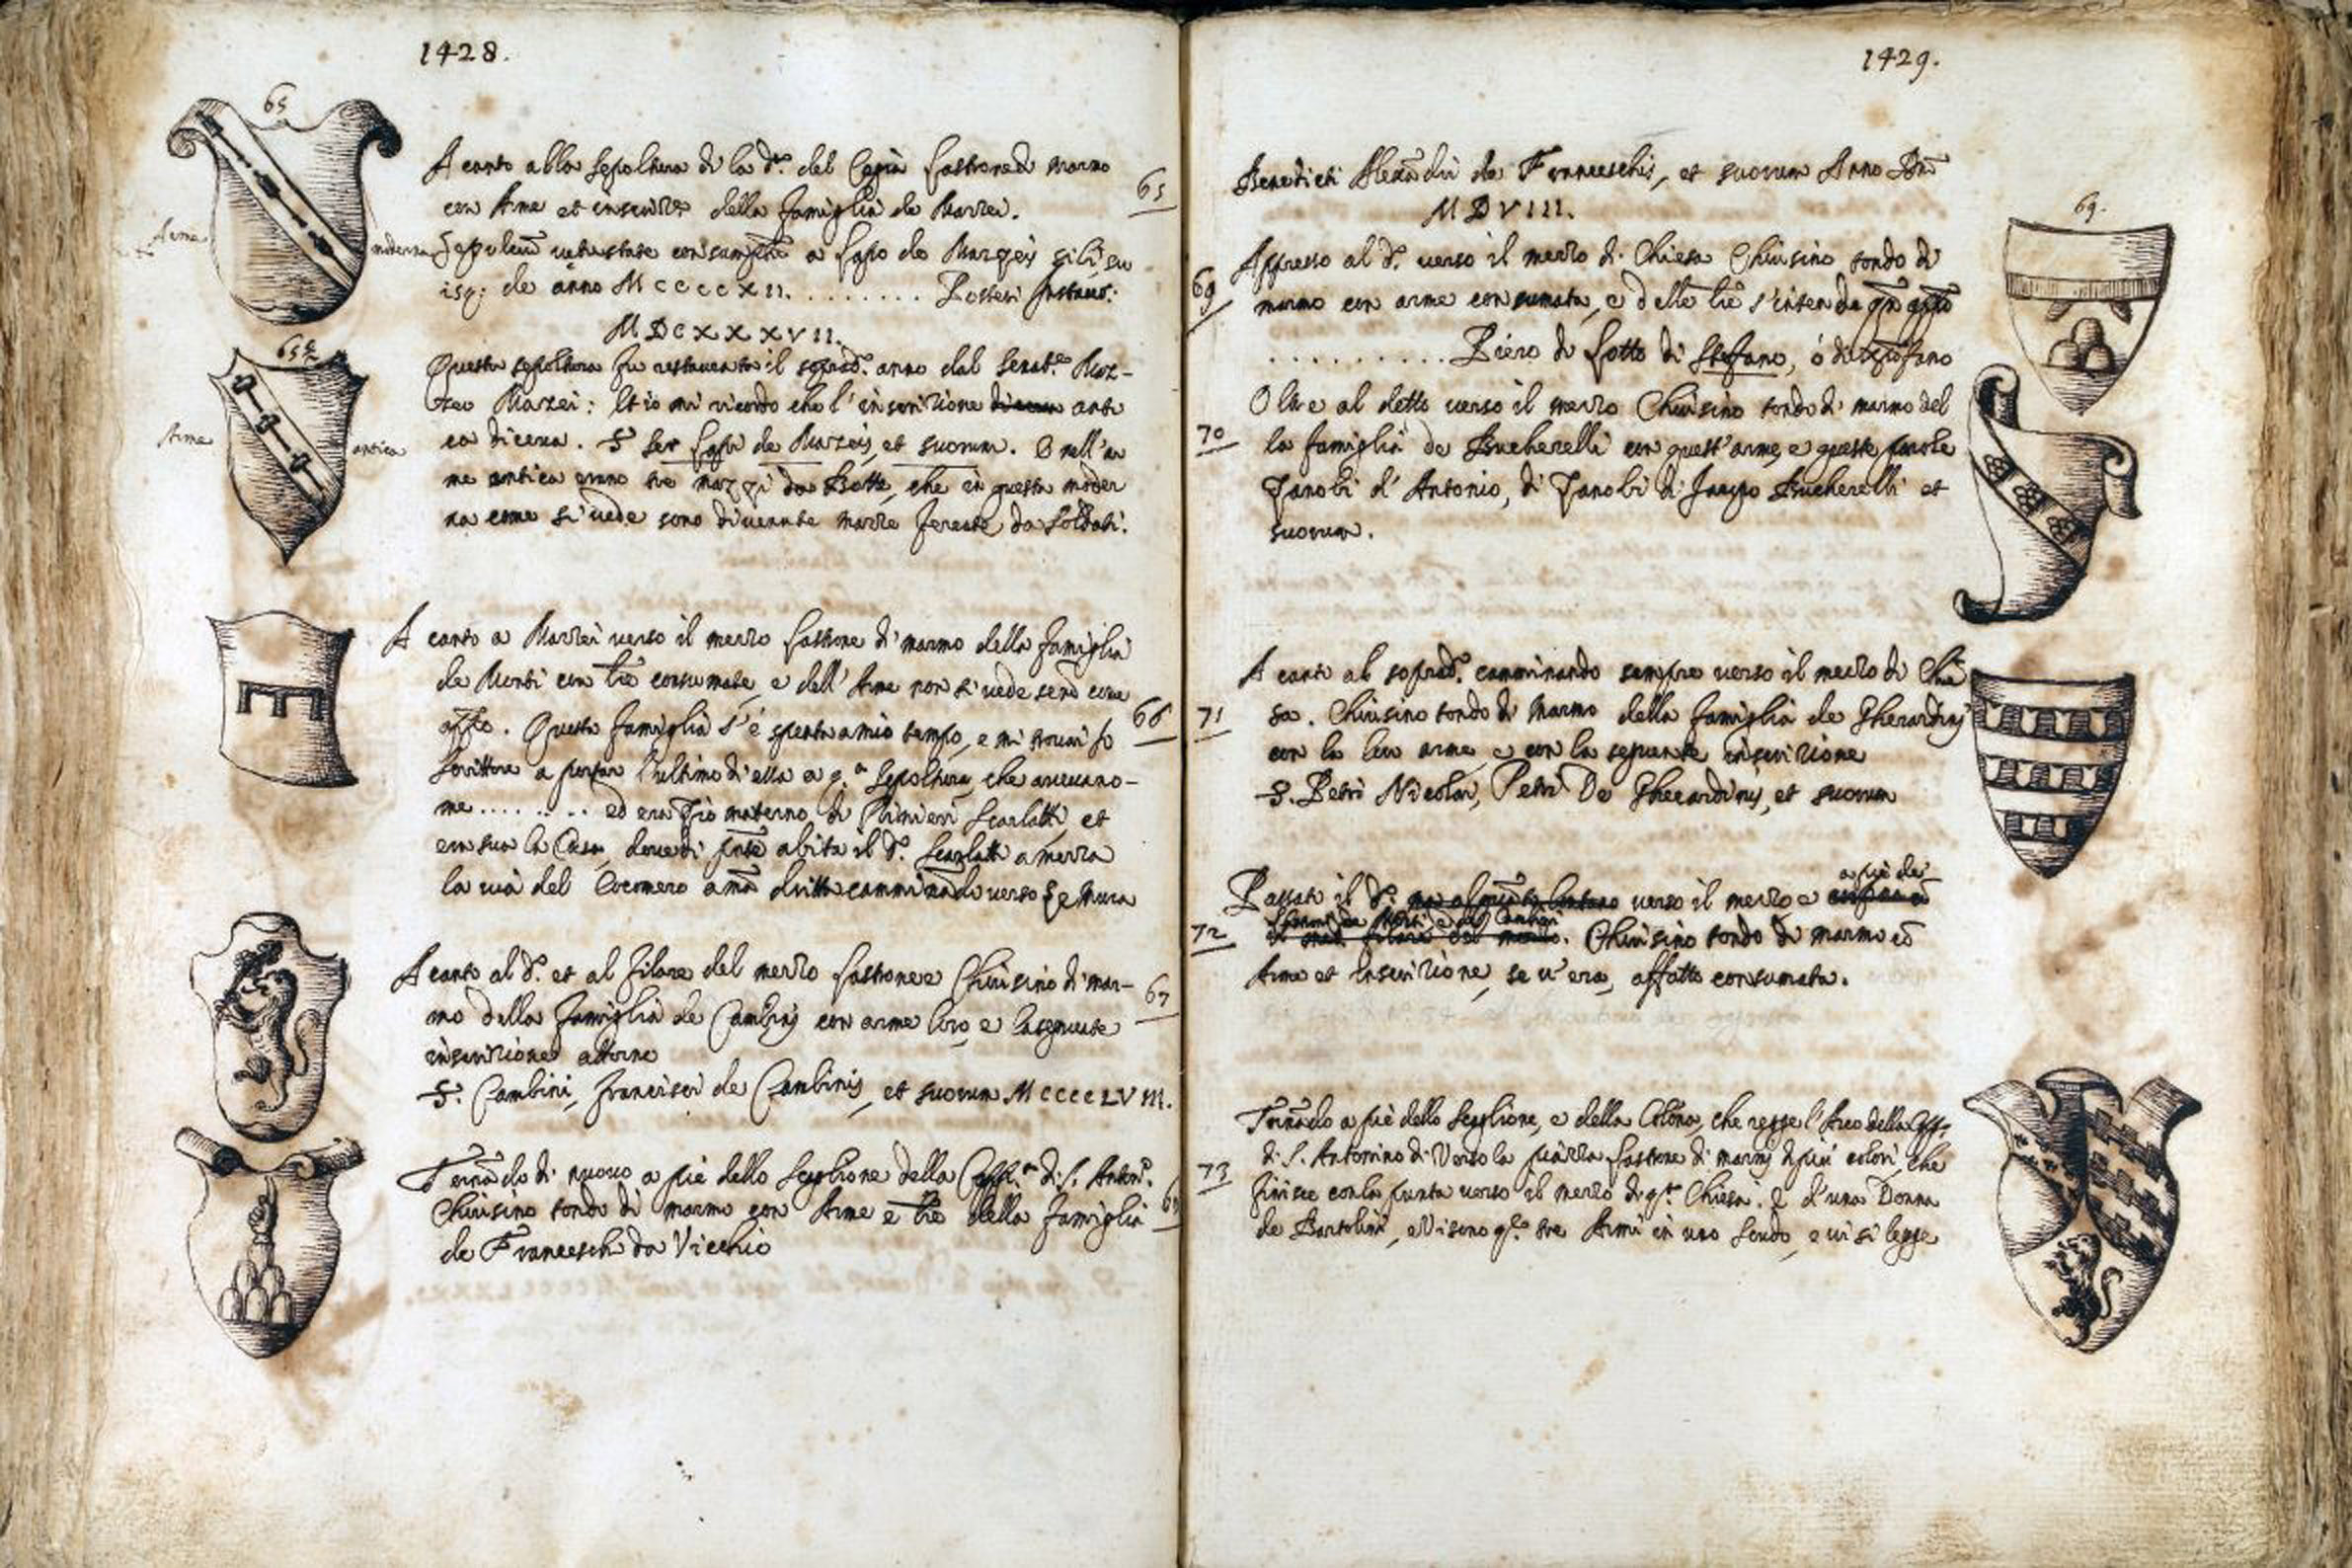 1428.
65
A canto alla Sepoltura di la d.ª del Lastrone di marmo
con Arme et inscrizz. della famiglia de Marzei. 65
Arme moderna
Sepulcrū vetustate a Lapo de Marzeis sibi, su
isq; de anno MCCCCXII. . . . . . . . . Posteri
MDCXXXVII.
65
Questa sepoltura fu restaurata il soprad.º anno dal Senat.re
Marzei: Et io mi ricordo che l'inscrizione anti
Arme antica
ca diceva. S. Ser Lapi de Marzeis, et suorum. E nell'ar
me antica erano tre mazzi da Botte, che in questa moder
na come si vede sono divenute mazze ferrate da Soldati.
A canto a Marzei verso il mezzo Lastrone di marmo della famiglia
de Monti con consumate, e dell' Arme non si vede senō
66
. Questa famiglia s'è spenta a mio tempo, e mi trovai
a portar l'ultimo di essa a q.ª Sepoltura, che aveva no-
me . . . . . . . . ed era Zio materno di Scarlatti, et
era sua la Casa, dove di abita il d.º Scarlatti a mezza
la via del Cocomero a mā dritta camminādo verso le Mura
A canto al d.º et al filare del mezzo Lastrone e Chiusino di mar-
67
mo della famiglia de Cambinj con arme loro, e la seguente
inscrizione attorno
S. Cambini, Francisci de Cambinis, et suorum MCCCCLVIII.
Tornādo di nuovo a piè dello Scaglione della Capp.ª di S. Anton.º
Chiusino tondo di marmo con Arme e della famiglia
de Franceschi da Vicchio
1429.
Benedicti Alexādri de Franceschis, et suorum Anno Dnī
MDVIII.
69.
Appresso al d.º verso il mezzo di Chiesa Chiusino tondo di
69
marmo con arme consumata, e delle s'intende
. . . . . . . . . . Piero di Lotto di Stefano, ò di
Oltre al detto verso il mezzo Chiusino tondo di marmo del
70
la famiglia de Bucherelli con quest'arme, e queste parole
Zanobi d'Antonio, di Zanobi di Jacopo Bucherelli et
suorum.
A canto al soprad.º camminando sempre verso il mezzo di Chie
71
sa. Chiusino tondo di marmo della famiglia de Gherardinj
con la loro arme e con la seguente inscrizione
S. Petri Nicolai, Petri De Gherardinis, et suorum
a piè de
Passato il d.º verso il mezzo e
72
Chiusino tondo di marmo cō
Arme et Inscrizione, se v'era, affatto consumata.
Tornādo a piè dello Scaglione, e della Colōna, che regge l'Arco della
73
di S. Antonino di Verso la piazza Lastrone di marmj di più colori, che
finisce con la punta verso il mezzo di q.ª Chiesa. È d'una Donna
de Bartolini, e Vi sono q.te tre Armi in uno Scudo, e vi si legge